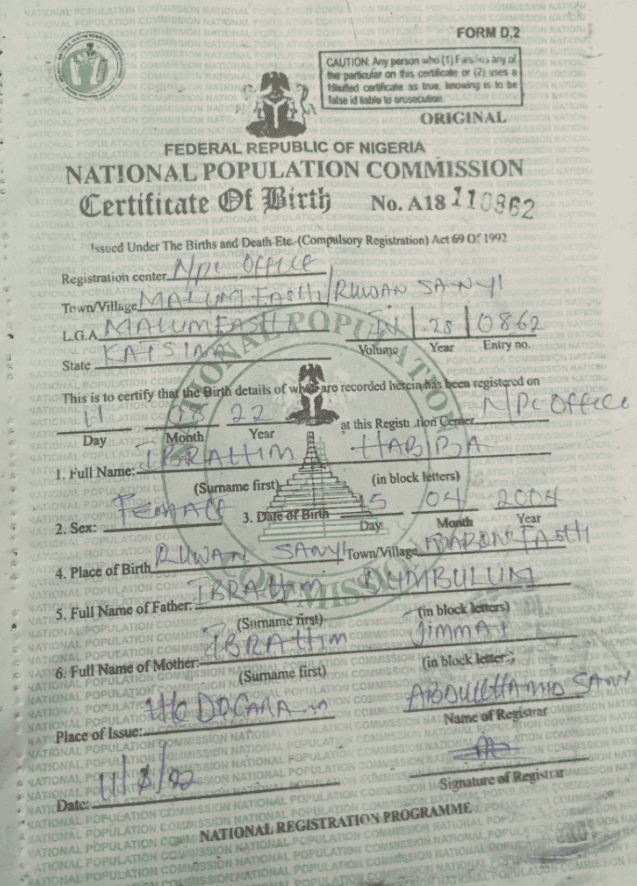 FORM D.2
CAUTION: Any person who (1) Falsifies any of
the particular on this certificate or (2) uses a
falsified certificate as true, knowing is to be
false id liable to prosecution.
ORIGINAL
FEDERAL REPUBLIC OF NIGERIA
NATIONAL POPULATION COMMISSION
Certificate Of Birth No. A18 110862
Issued Under The Births and Death Etc. (Compulsory Registration) Act 69 Of 1992
Registration center NPC OFFICE
Town/Village MALUMFASHI/RUWAN SANYI
L.G.A MALUMFASHI IN 28 0862
State KATSINA Volume Year Entry no.
This is to certify that the Birth details of whom are recorded herein has been registered on
11 22 at this Registration Center NPC OFFICE
Day Month Year
1. Full Name: IBRAHIM HABIBA
(Surname first) (in block letters)
2. Sex: FEMALE 3. Date of Birth 15 04 2004
Day Month Year
4. Place of Birth RUWAN SANYI Town/Village
5. Full Name of Father: IBRAHIM DUMBULUM
(Surname first) (in block letters)
6. Full Name of Mother: IBRAHIM JIMMAI
(Surname first) (in block letters)
Place of Issue: ABDULHAMID SANI
Name of Registrar
Date: 11/8/22
Signature of Registrar
NATIONAL REGISTRATION PROGRAMME